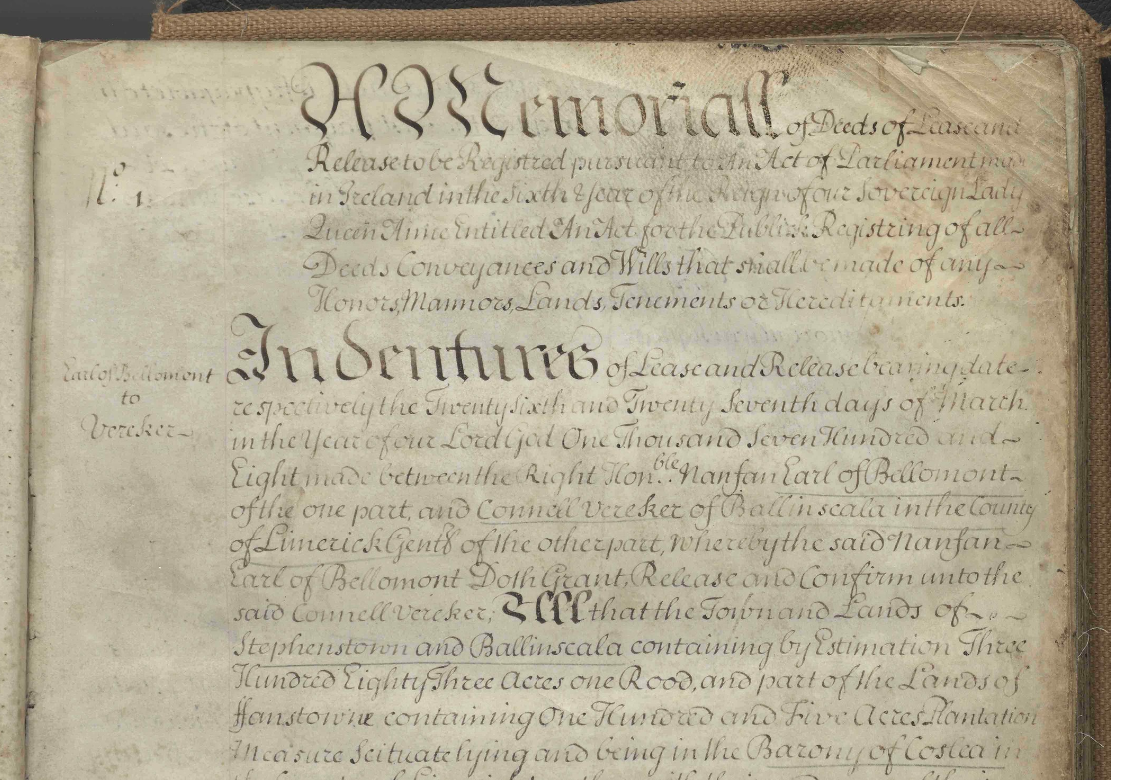 A Memoriall of Deeds of Lease and
No. 1
Release to be Registred pursuant to An Act of Parliament made
in Ireland in the Sixth Year of the Reign of our Sovereign Lady
Queen Anne Entitled An Act for the Publick Registring of all
Deeds Conveyances and Wills that shall be made of any
Honors, Mannors, Lands, Tenements or Hereditaments.
Earl of Bellomont
to
Vereker
Indentures of Lease and Release bearing date
respectively the Twenty Sixth and Twenty Seventh days of March
in the Year of our Lord God One Thousand Seven Hundred and
Eight made between the Right Honble. Nanfan Earl of Bellomont
of the one part, and Connell Vereker of Ballinscala in the County
of Limerick Gent of the other part, whereby the said Nanfan
Earl of Bellomont Doth Grant, Release and Confirm unto the
said Connell Vereker, All that the Town and Lands of
Stephenstown and Ballinscala containing by Estimation Three
Hundred Eighty Three Acres one Rood, and part of the Lands of
ffanstowne containing One Hundred and Five Acres Plantation
Measure Scituate lying and being in the Barony of Coslea in